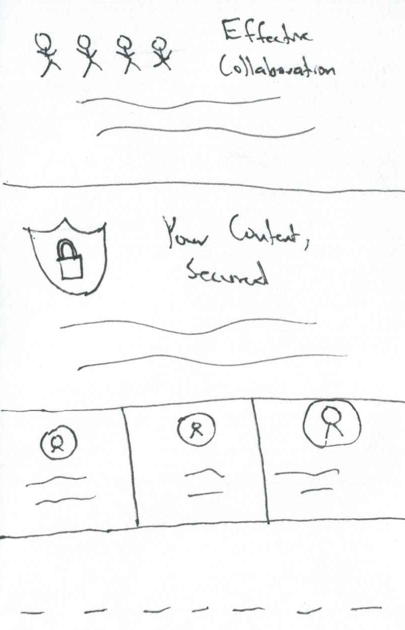 Effective
Collaboration
Your Content,
Secured